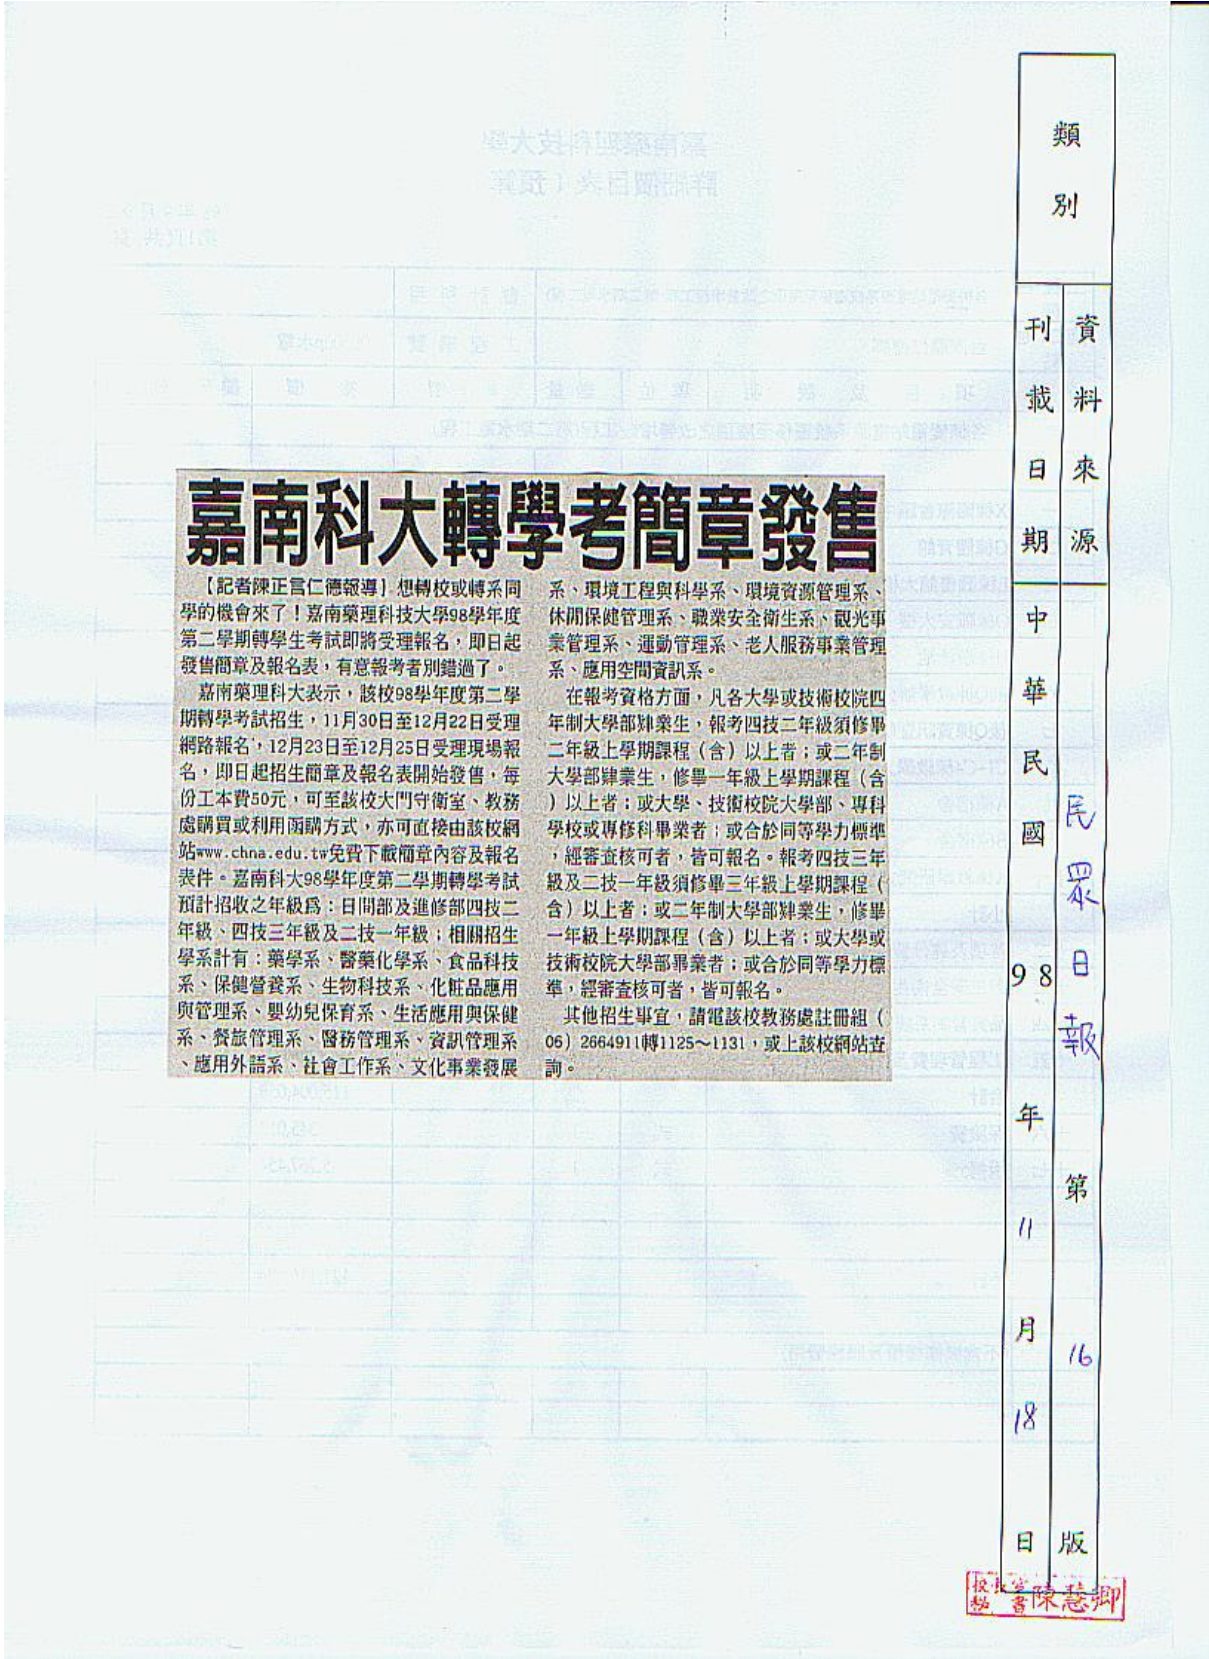 嘉南科大轉學考簡章發售
【記者陳正言仁德報導】想轉校或轉系同
學的機會來了！嘉南藥理科技大學98學年度
第二學期轉學生考試即將受理報名，即日起
發售簡章及報名表，有意報考者別錯過了。
嘉南藥理科大表示，該校98學年度第二學
期轉學考試招生，11月30日至12月22日受理
網路報名，12月23日至12月25日受理現場報
名，即日起招生簡章及報名表開始發售，每
份工本費50元，可至該校大門守衛室、教務
處購買或利用函購方式，亦可直接由該校網
站www.chna.edu.tw免費下載簡章內容及報名
表件。嘉南科大98學年度第二學期轉學考試
預計招收之年級為：日間部及進修部四技二
年級、四技三年級及二技一年級；相關招生
學系計有：藥學系、醫藥化學系、食品科技
系、保健營養系、生物科技系、化粧品應用
與管理系、嬰幼兒保育系、生活應用與保健
系、餐旅管理系、醫務管理系、資訊管理系
、應用外語系、社會工作系、文化事業發展
系、環境工程與科學系、環境資源管理系、
休閒保健管理系、職業安全衛生系、觀光事
業管理系、運動管理系、老人服務事業管理
系、應用空間資訊系。
在報考資格方面，凡各大學或技術校院四
年制大學部肄業生，報考四技二年級須修畢
二年級上學期課程（含）以上者；或二年制
大學部肄業生，修畢一年級上學期課程（含
）以上者；或大學、技術校院大學部、專科
學校或專修科畢業者；或合於同等學力標準
，經審查核可者，皆可報名。報考四技三年
級及二技一年級須修畢三年級上學期課程（
含）以上者；或二年制大學部肄業生，修畢
一年級上學期課程（含）以上者；或大學或
技術校院大學部畢業者；或合於同等學力標
準，經審查核可者，皆可報名。
其他招生事宜，請電該校教務處註冊組（
06）2664911轉1125～1131，或上該校網站查
詢。
類別
資料來源
民眾日報 第 16 版
刊載日期
中華民國 98 年 11 月 18 日
秘書 陳慧卿